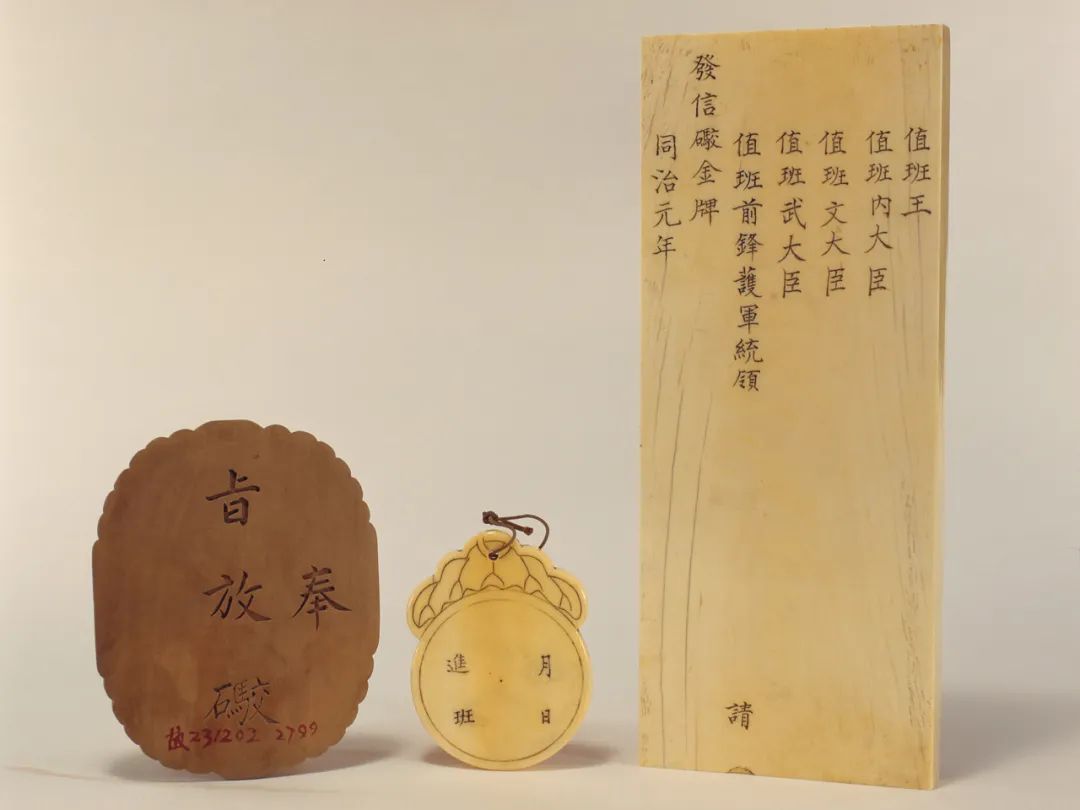 奉
旨放礮
故231202 2799
月日
進班
值班王
值班内大臣
值班文大臣
值班武大臣
值班前鋒護軍統領 請
發信礮金牌
同治元年